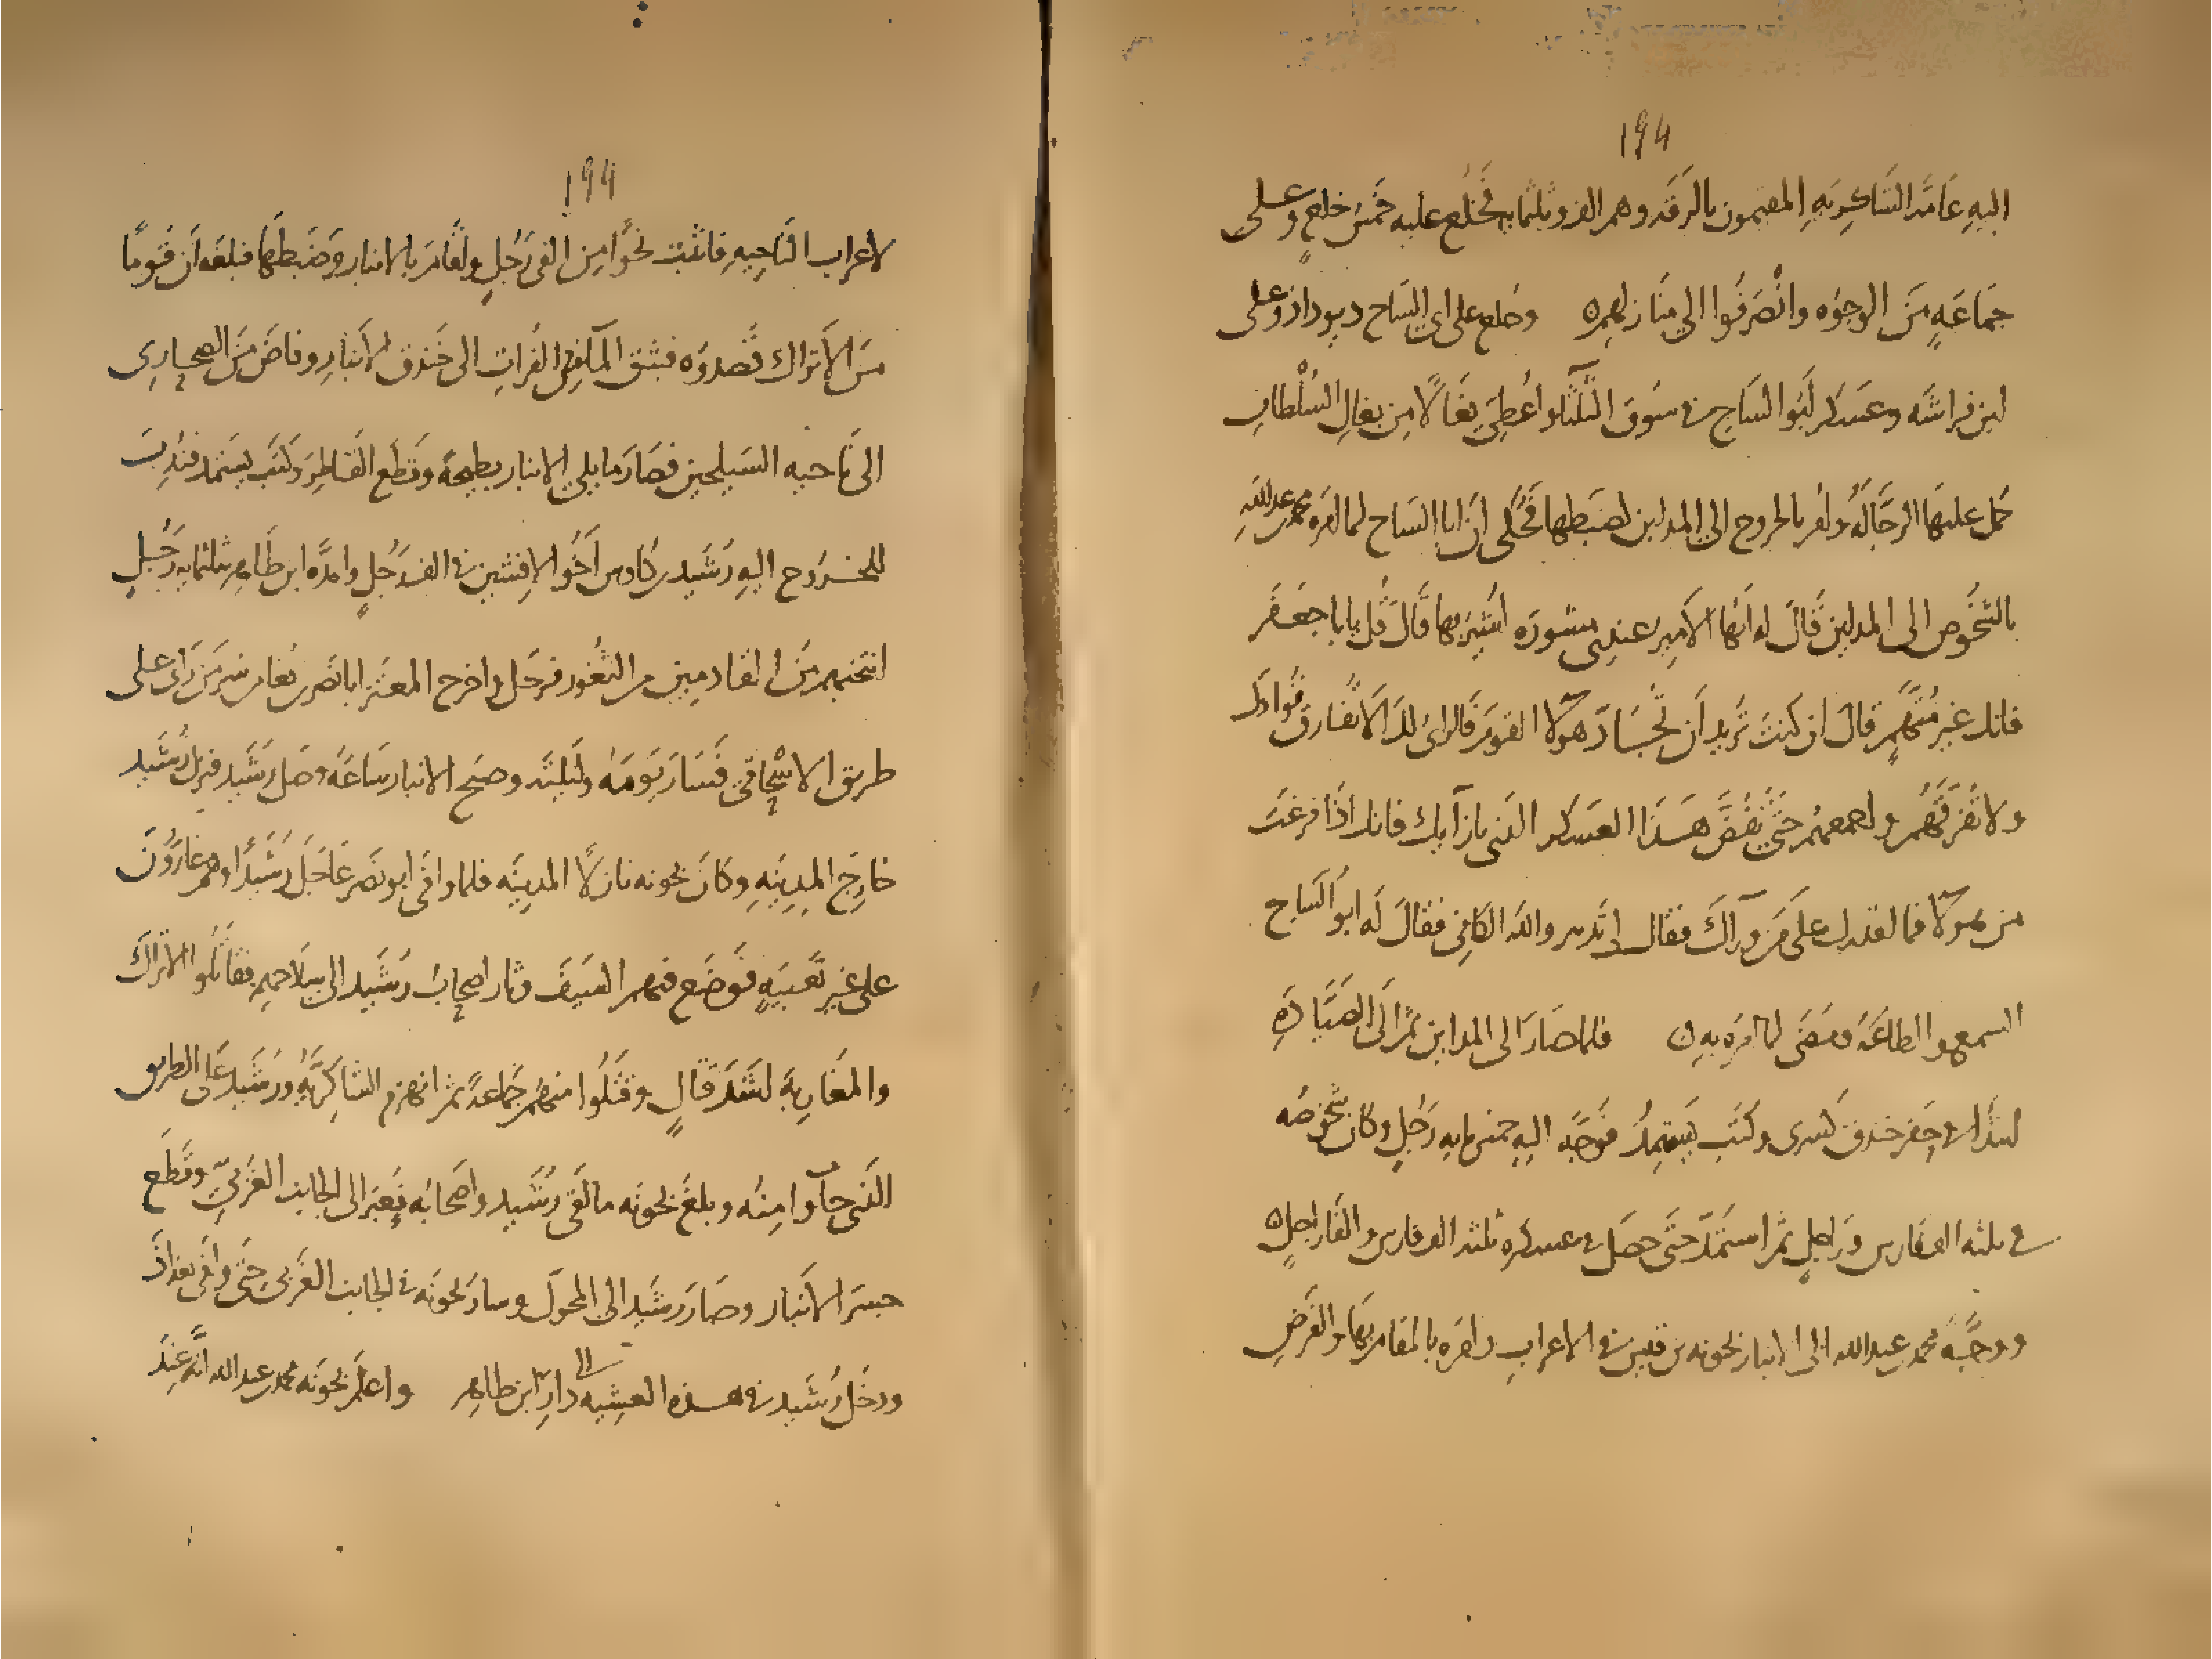 ١٩٤
اليه عامة الشاكرية المقيمون بالرقة وهم الف وثلثمايه فخلع عليه خمس خلع وعلى
جماعة من الوجوه وانصرفوا الى منازلهم ه وخلع على ابى الساج ديوداذ وعلى
ابن فراشه وعسكر ابو الساج فى سوق الثلثا واعطى بغالا من بغال السلطان
حمل عليها الرجالة وامر بالخروج الى المداين لضبطها فحكى ان ابا الساج لما امره محمد بن عبدالله
بالشخوص الى المداين قال له ايها الامير عندى مشورة اشير بها قال قل يابا جعفر
فانك غير متهم قال ان كنت تريد ان تجاد هولا القوم فالراى لك الا تفارق قوادك
ولا تفرقهم واجمعهم حتى تفض هذا العسكر الذى بازآيك فانك اذا فرغت
من هولا فما اقدرك على من ورآك فقال ان لى تدبيرا والله الكافى فقال له ابو الساج
السمع والطاعة ومضى لما امره به ن فلما صار الى المداين ثم الى الصيادة
ابتدا فى حفر خندق كسرى وكتب يستمد فوجه اليه خمس مايه رجل وكان شخوصه
فى ثلثه الف فارس وراجل ثم استمد حتى حصل فى عسكره ثلثه الف فارس والفا راجل ه
ووجه محمد بن عبدالله الى الانبار نجوبه بن قيس فى الاعراب وامره بالمقام بها والفرض
١٩٤
لاعراب الناحيه فاثبت نحوا من الفى رجل واقام بالانبار وضبطها فبلغه ان قوما
من الاتراك قصدوه فبثق المآ من الفرات الى خندق الانبار وفاض من الصحارى
الى ناحيه السيلحين فصار ما يلى الانبار بطيحة وقطع القناطر وكتب يستمد فندب
للخروج اليه رشيد بن كاوس اخو الافشين فى الف رجل وامده ابن طاهر بثلثمايه رجل
انتخبهم من القادمين من الثغور فرحل واخرج المعتز ابا نصر بن بغا من سر من راى على
طريق الاسحاقى فسار يومه وليلته وصبح الانبار ساعه وصل رشيد فنزل رشيد
خارج المدينه وكان نجوبه نازلا المدينه فلما وافى ابو نصر عاجل رشيدا وهم غارون
على غير تعبيه فوضع فيهم السيف وثار اصحاب رشيد الى سلاحهم فقاتلوا الاتراك
والمغاربة اشد قتال وقتلوا منهم جماعة ثم انهزم الشاكريه ورشيد على الطريق
الذى جآوا منه وبلغ نجوبه ما لقى رشيد واصحابه فعبر الى الجانب الغربى وقطع
جسر الانبار وصار رشيد الى المحول وسار نجوبه فى الجانب الغربى حتى وافى بغداذ
ودخل رشيد فى هذه العشيه دار ابن طاهر واعلم نجوبه محمد بن عبدالله انه عند